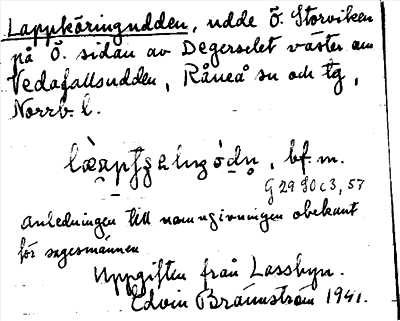 Lappköringudden, udde Ö. Storviken
på Ö. sidan av Degerselet väster om
Vedafallsudden, Råneå sn och tg,
Norrb. l.
bf. m.
G 29 90 c 3, 57
Anledningen till namngivningen obekant
för sagesmännen
Uppgiften från Lassbyn.
Edvin Brännström 1941.